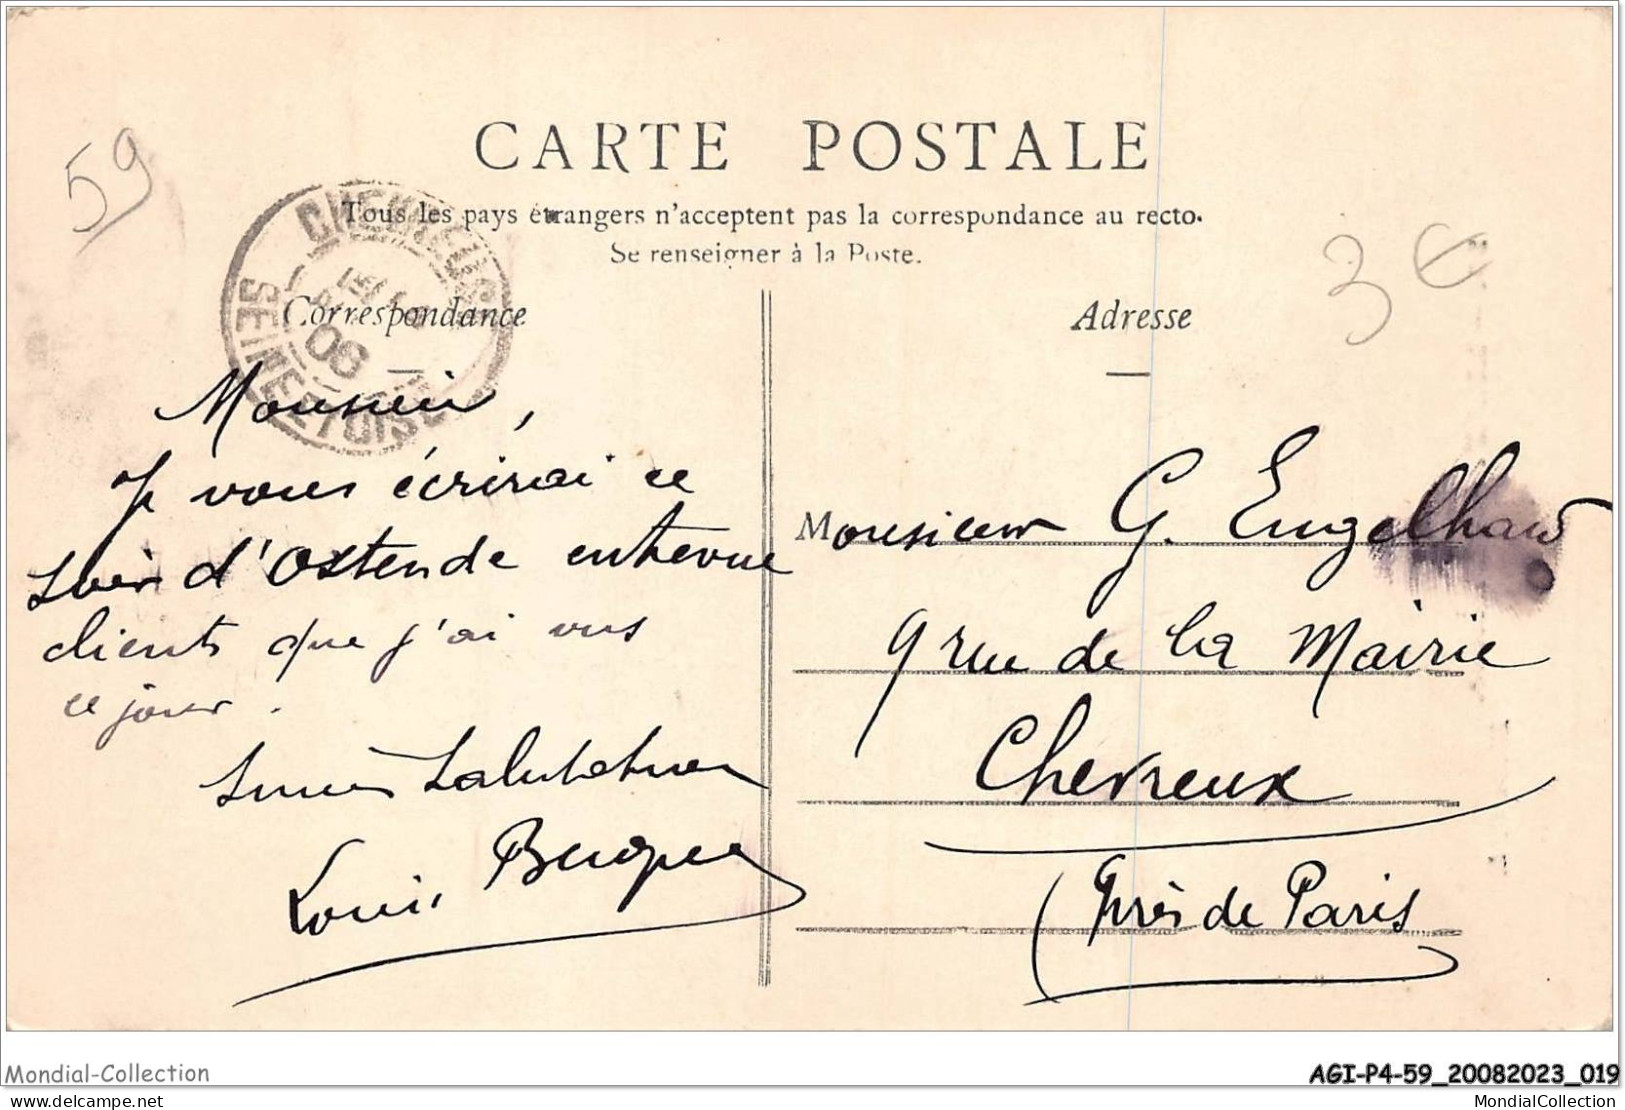 CARTE POSTALE
Tous les pays étrangers n'acceptent pas la correspondance au recto.
Se renseigner à la Poste.
59
3 €
CHEVREUSE
06
SEINE ET OISE
Correspondance
Monsieur,
Je vous écrirai ce
soir d'Ostende entrevue
clients que j'ai vus
ce jour.
Salutations
Louis
Adresse
Monsieur G. Engelhard
9 rue de la Mairie
Chevreux
(Près de Paris
Mondial-Collection
AGI-P4-59_20082023_019
delcampe.net
MondialCollection